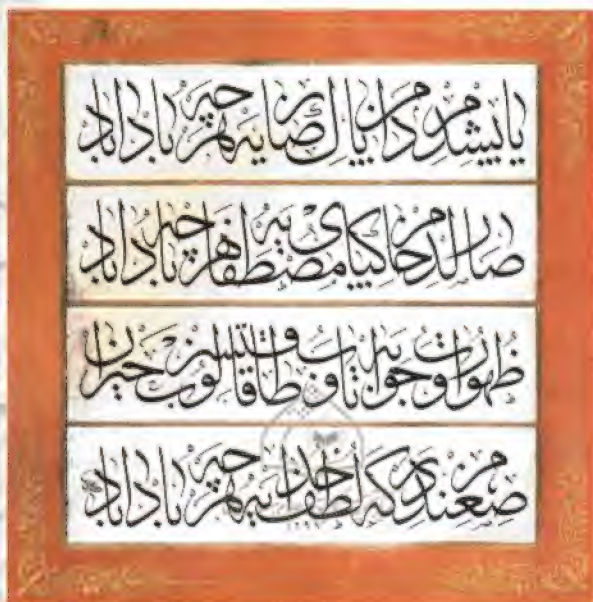 یاپیشدم دامن رضایه هر چه باداباد
صارلدم خاکپای مصطفایه هر چه باداباد
ظهورات و جوابه تاب و طاقتسز قالوب حیران
صغندم درکه لطف خدایه هر چه باداباد